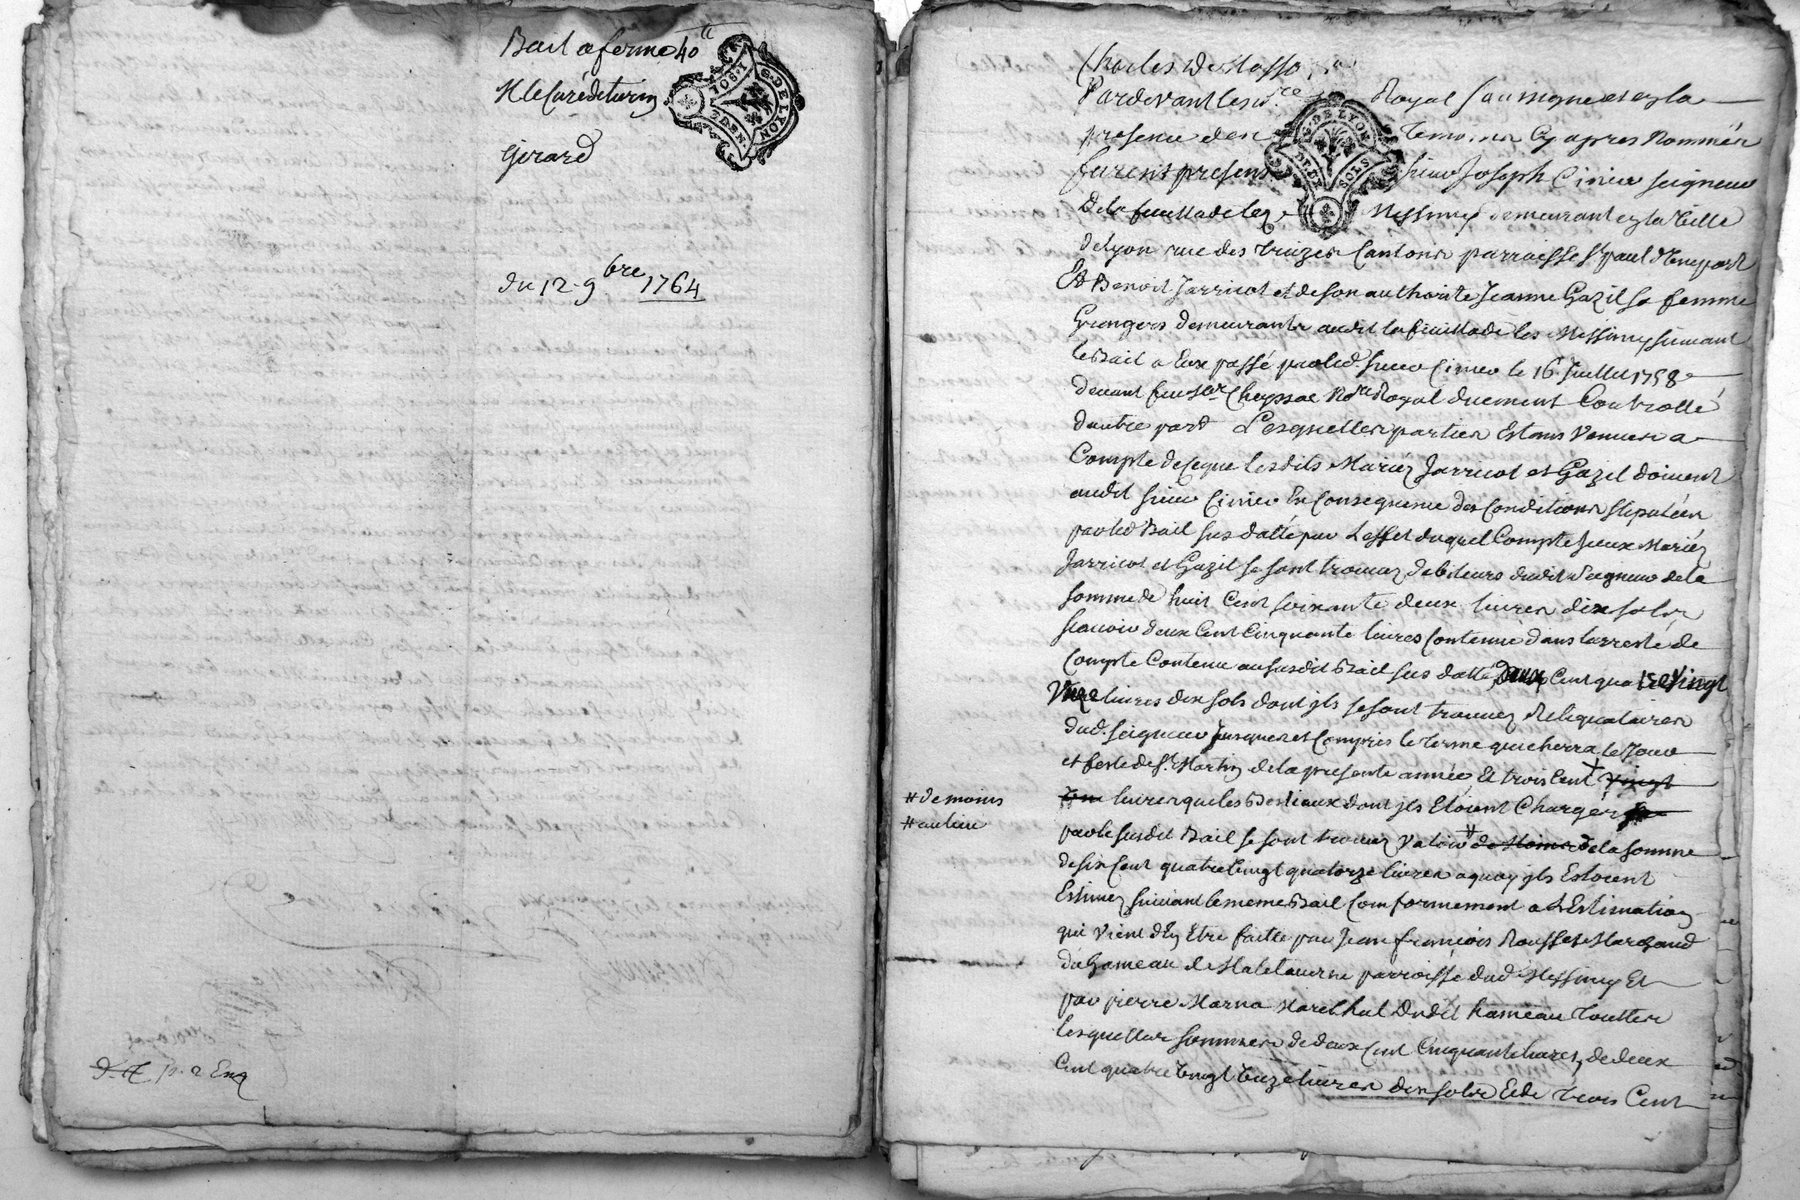 Bail a ferme 40 tt
Mr le Curé de turin
Girard
G. DE LYON
1. SOL
du 12. 9bre 1764
Pardevant le
Royal soussigné et en la
presence des
temoins cy apres Nommés
furent presens
sieur Joseph Cinier seigneur
De la feuillade lez
Messimy demeurant en la Ville
de Lyon rue des treizes Cantons parroisse st paul d'Une part
Et Benoit Jarricot et de son authorité Jeanne Gazil sa femme
Grangers demeurants audit la feuillade les Messimy suivant
le Bail a Eux passé par led. sieur Cinier le 16 Juillet 1758
devant feu Me Cheyssac Nore Royal duement Controllé
d'autre part Lesquelles parties Estans Venues a
Compte de ce que lesdits Mariez Jarricot et Gazil doivent
audit sieur Cinier En Consequence des Conditions stipulées
par led Bail sus datté par L'effet duquel Compte Iceux Mariéz
Jarricot et Gazil se sont trouvez debiteurs dudit seigneur de la
somme de huit Cent soixante deux livres dix sols
scavoir deux Cent Cinquante livres Contenue dans l'arresté de
Compte Contenu au susdit Bail sus datté, deux Cent quatre Vingt
livres dix sols dont ils se sont trouvez Reliquataires
dud. seigneur Jusques et Compris le terme qui cherra le Jour
et feste de st Martin de la presente année, Et trois Cent vingt
livres que les Bestiaux dont ils Etoient Chargés
# de moins
# au lieu
par le susdit Bail se sont trouvez Valoir # de Moins de la somme
de six Cent quatre Vingt quatorze livres a quoy ils Estoient
Estimez suivant le meme Bail Conformement a L'Estimation
qui Vient d'En Etre faitte par Jean françois Rousset Marchand
du hameau de Malataverne parroisse dud Messimy Et
par pierre Marna Marechal dudit hameau toutes
lesquelles sommes de deux Cent Cinquante livres, de deux
Cent quatre Vingt treize livres dix sols Et de trois Cent